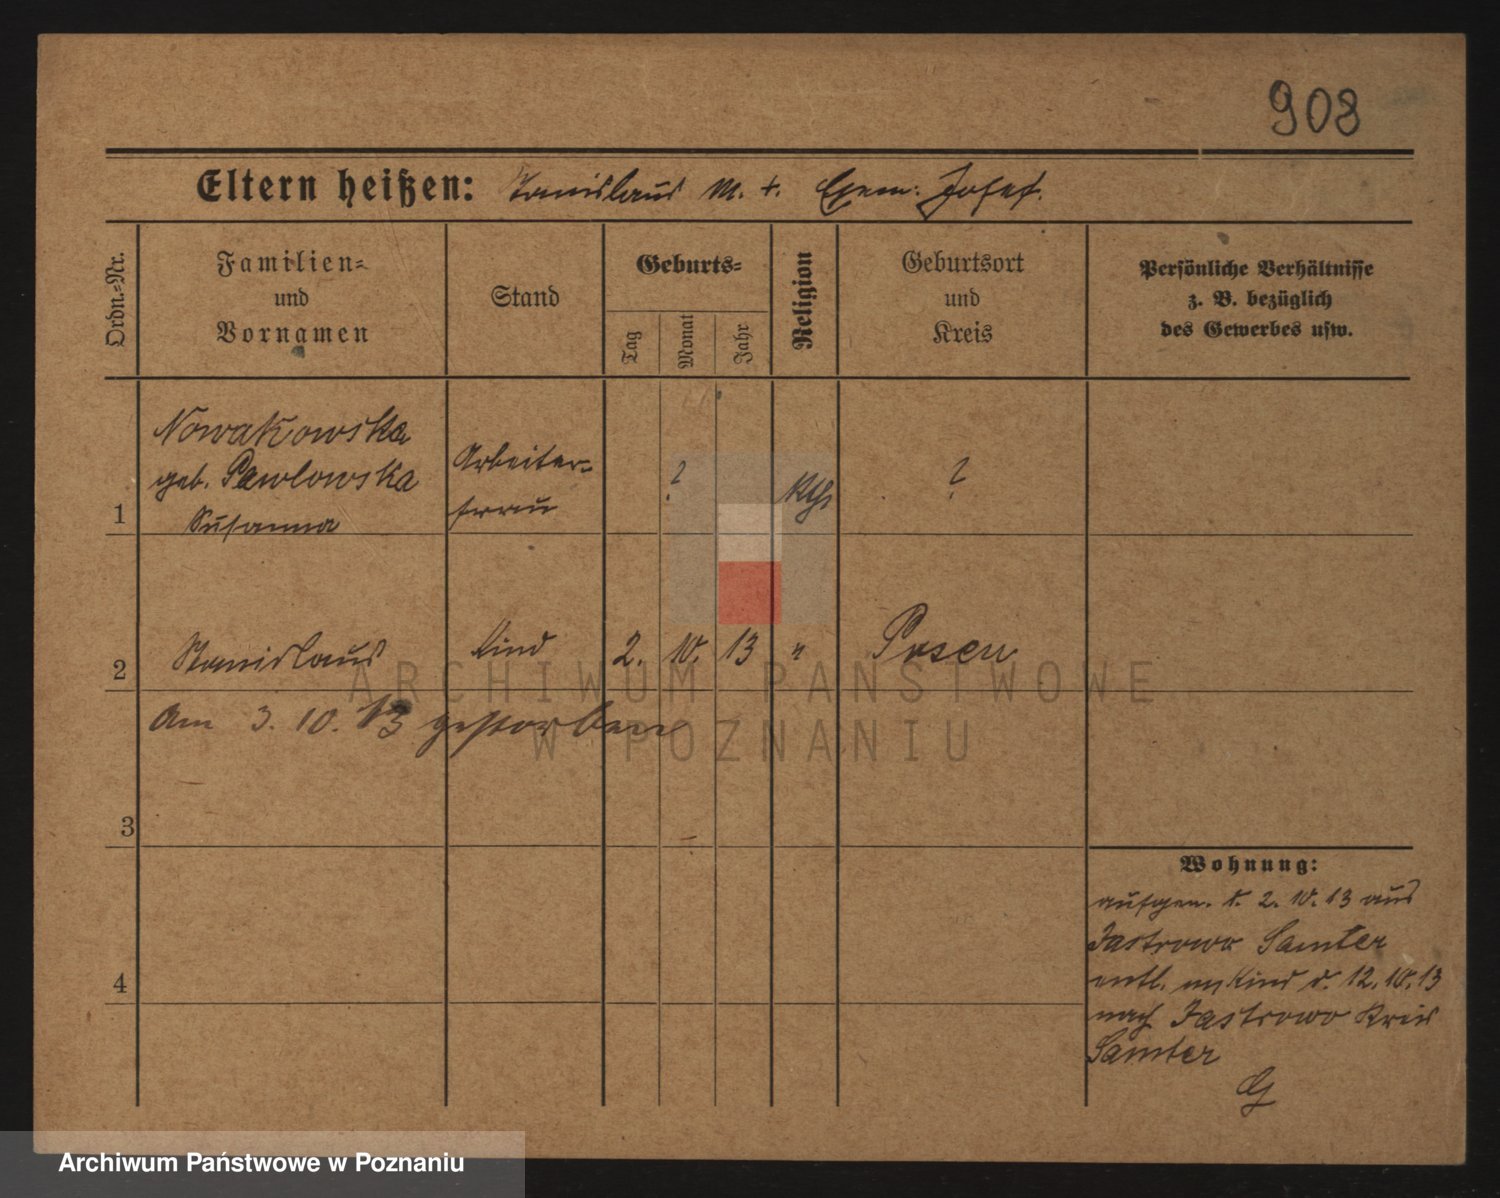 908
Eltern heißen: Stanislaus M. +. Exem: Josef.
Ordn.=Nr.
Familien=
und
Vornamen
Stand
Geburts=
Tag
Monat
Jahr
Religion
Geburtsort
und
Kreis
Persönliche Verhältnisse
z. B. bezüglich
des Gewerbes usw.
1
Nowakowska
geb. Pawlowska
Susanna
Arbeiter=
frau
?
Kth.
?
2
Stanislaus
Kind
2. 10. 13
"
Posen
Am 3. 10. 13 gestorben
3
4
Wohnung:
aufgen. d. 2. 10. 13 aus
Jastrowo Samter
entl. Kind d. 12. 10. 13
nach Jastrowo Kreis
Samter
G
ARCHIWUM PAŃSTWOWE
W POZNANIU
Archiwum Państwowe w Poznaniu